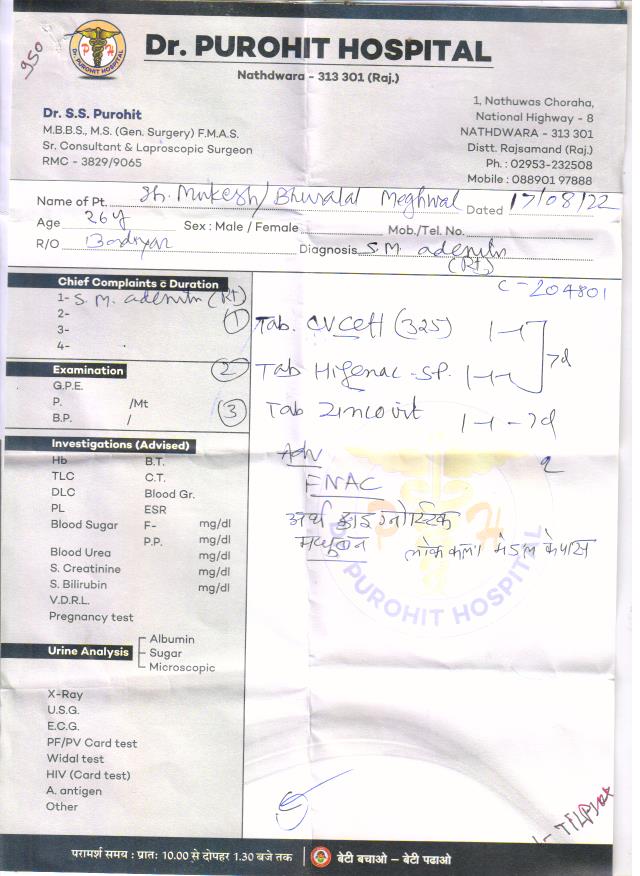 950
Dr. PUROHIT HOSPITAL
DR. PUROHIT HOSPITAL
P H
Nathdwara - 313 301 (Raj.)
Dr. S.S. Purohit
M.B.B.S., M.S. (Gen. Surgery) F.M.A.S.
Sr. Consultant & Laproscopic Surgeon
RMC - 3829/9065
1, Nathuwas Choraha,
National Highway - 8
NATHDWARA - 313 301
Distt. Rajsamand (Raj.)
Ph. : 02953-232508
Mobile : 088901 97888
Name of Pt. Sh. Mukesh/Bhuralal Meghwal Dated 17/08/22
Age 26 y Sex : Male / Female Mob./Tel. No.
R/O Diagnosis S.M. adenitis
(Rt)
C-204801
Chief Complaints c̄ Duration
1- S.M. adenitis (Rt)
2-
3-
4-
① Tab. CV Cett (325) 1-1
② Tab Hifenac-SP. 1-1
7d
③ Tab Zincovit 1-1 - 7d
Examination
G.P.E.
P. /Mt
B.P. /
Adv
FNAC
अर्थ डाइग्नोस्टिक
मधुबन लोक कला मंडल के पास
Investigations (Advised)
Hb B.T.
TLC C.T.
DLC Blood Gr.
PL ESR
Blood Sugar F- mg/dl
P.P. mg/dl
Blood Urea mg/dl
S. Creatinine mg/dl
S. Bilirubin mg/dl
V.D.R.L.
Pregnancy test
PUROHIT HOSPITAL
Urine Analysis
Albumin
Sugar
Microscopic
X-Ray
U.S.G.
E.C.G.
PF/PV Card test
Widal test
HIV (Card test)
A. antigen
Other
परामर्श समय : प्रातः 10.00 से दोपहर 1.30 बजे तक
बेटी बचाओ – बेटी पढाओ